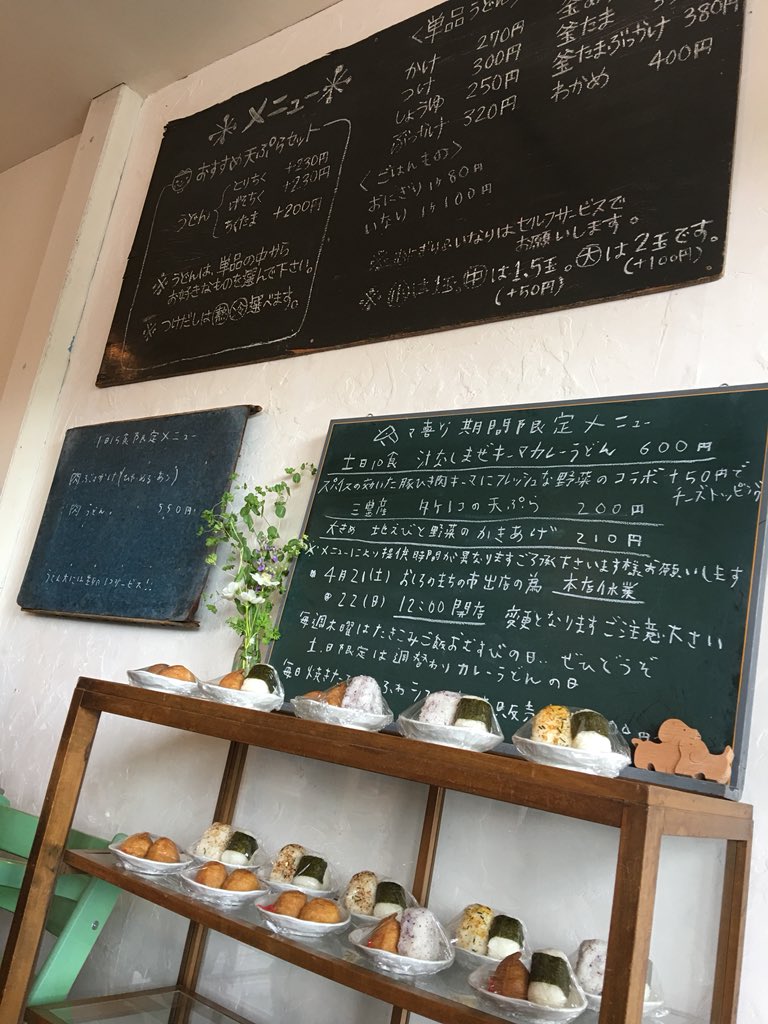 メニュー
おすすめ天ぷらセット
うどん
とりちく +230円
げそちく +230円
ちくたま +200円
※うどんは、単品の中から
お好きなものを選んで下さい。
※つけだしは 熱 冷 選べます。
<単品うどん
かけ 270円
つけ 300円
しょうゆ 250円
ぶっかけ 320円
釜たま
釜たまぶっかけ 380円
わかめ 400円
<ごはんもの>
おにぎり1ケ80円
いなり1ケ100円
※おにぎり・いなりはセルフサービスで
お願いします。
中は1.5玉。大は2玉です。
(+50円) (+100円)
1日15食限定メニュー
肉ぶっかけ(ひやあつ)
肉うどん 550円
期間限定メニュー
土日10食 汁なしまぜキーマカレーうどん 600円
スパイスの効いた豚ひき肉キーマにフレッシュな野菜のコラボ +50円で
チーズトッピング
三豊産 タケノコの天ぷら 200円
大きめ 地えびと野菜のかきあげ 210円
※メニューにより提供時間が異なりますご了承下さいます様お願いします
4月21(土) おしろのまちの市出店の為 本店休業
22(日) 12:00開店 変更となりますご注意下さい
毎週木曜はたきこみご飯おむすびの日.. ぜひどうぞ
土日限定は週替わりカレーうどんの日
毎日焼きた
販売